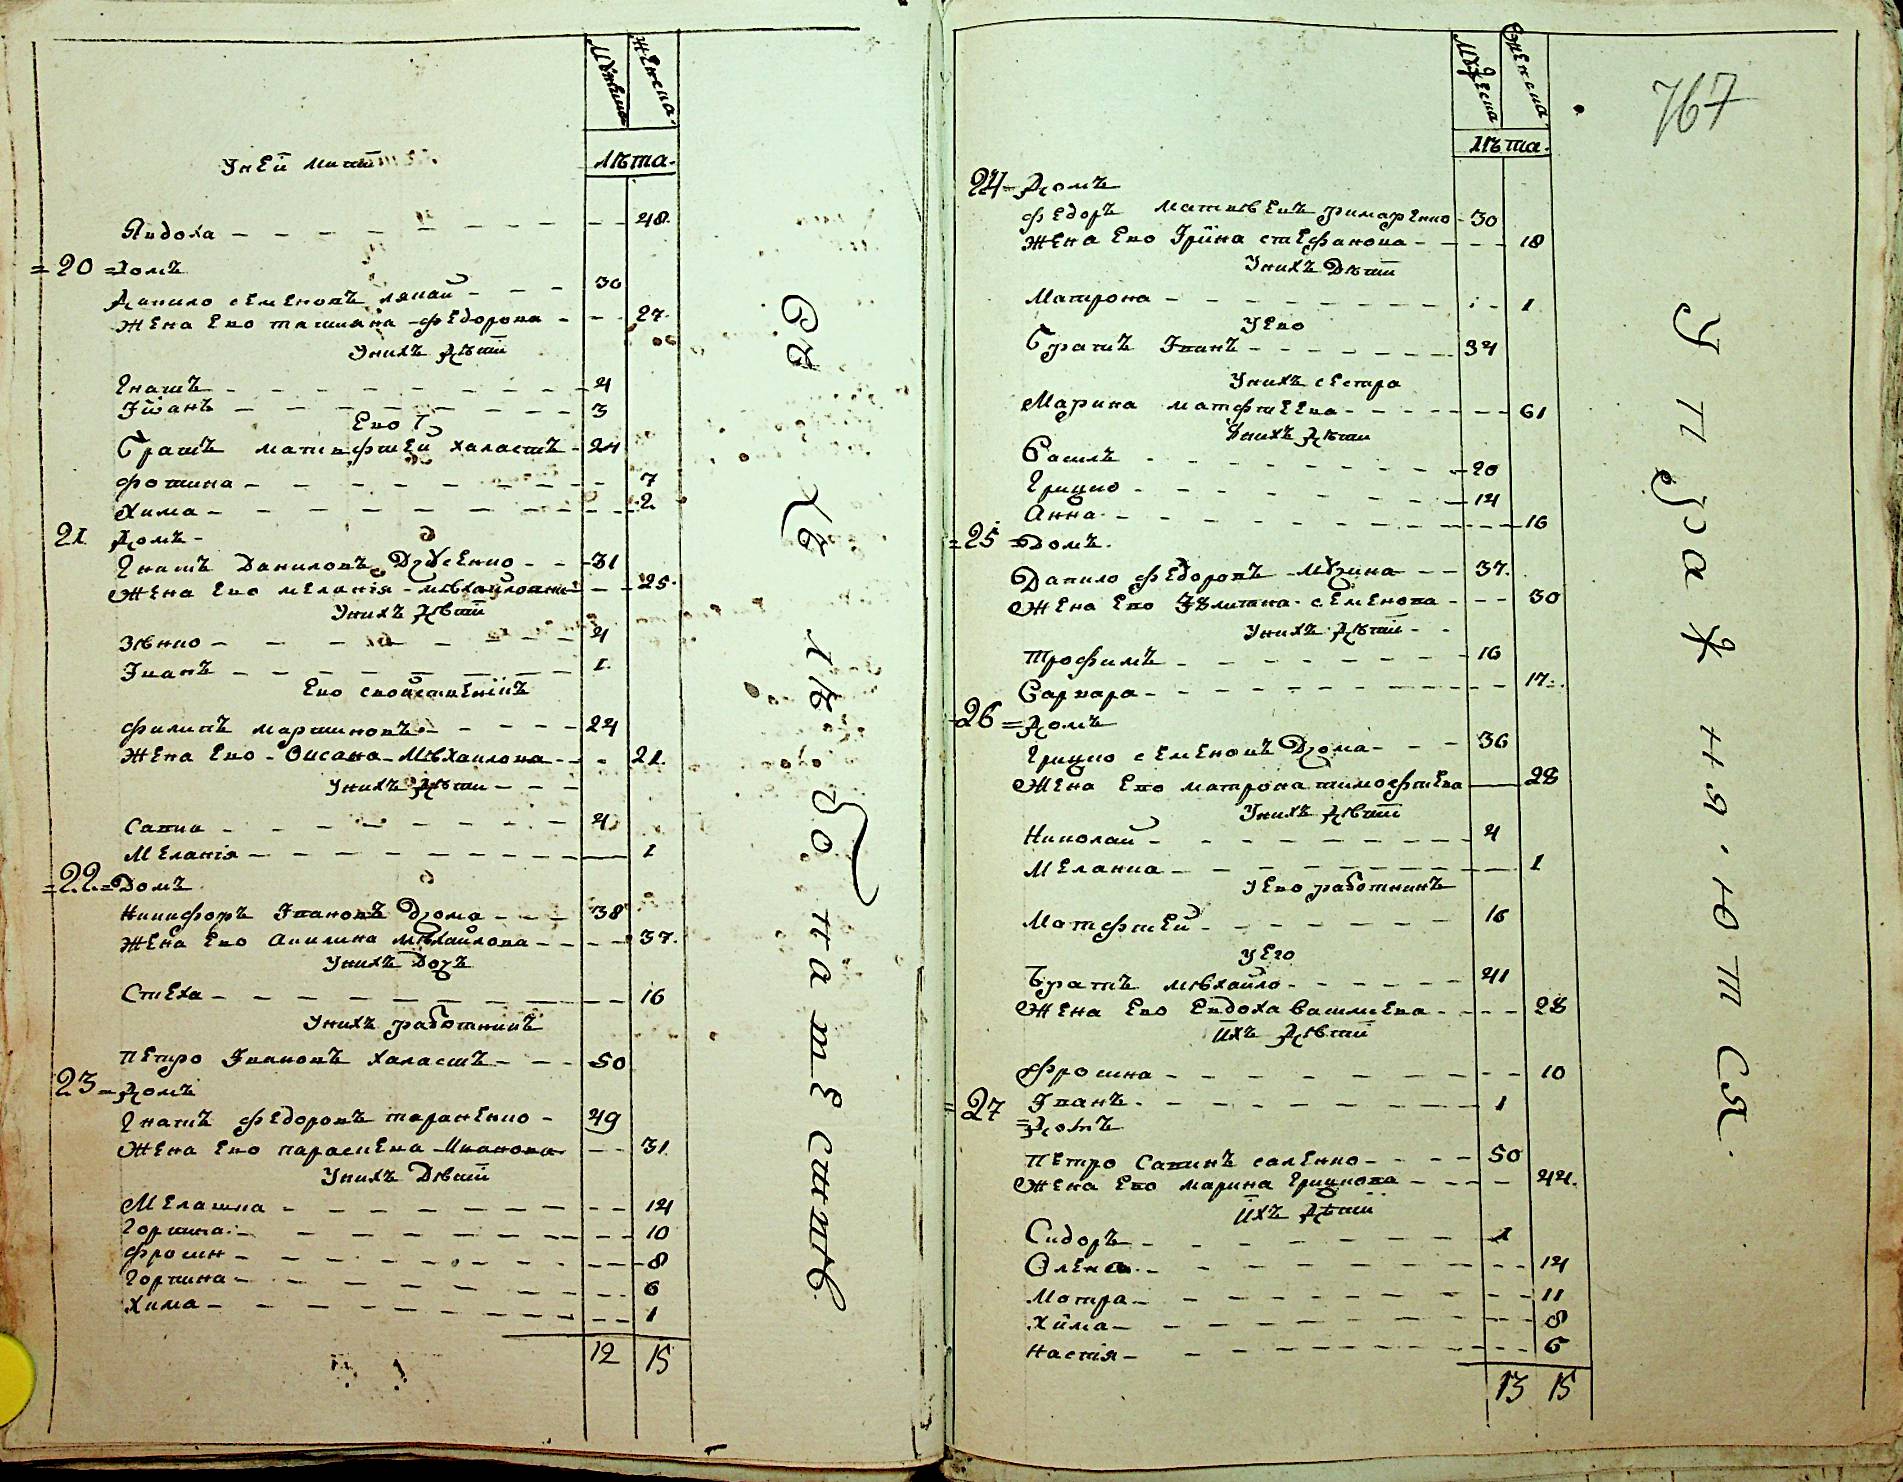 Мужеска
Женска
Лѣта
У ней мати
Явдоха 48
20 Домъ
Данило Семеновъ Лапай 30
Жена ево Татиана Федорова 27
У нихъ дѣти
Гнатъ 4
Іванъ 3
Ево
Братъ Матвфтей Халастъ 24
Фотина 7
Хима 2
21 Домъ
Гнатъ Даниловъ Друсенко 31
Жена ево Меланія Мѣхайловна 25
У нихъ дѣти
Зѣнко 4
Іванъ 1
Ево свойственікъ
Филипъ Мартиновъ 24
Жена ево Оксана Мѣхаилова 21
У нихъ дѣти
Савка 4
Меланія 1
22 Домъ
Никифоръ Івановъ Дрома 38
Жена ево Акилина Мѣхайлова 37
У нихъ дочъ
Стеха 16
У нихъ работникъ
Петро Івановъ Халастъ 50
23 Домъ
Гнатъ Федоровъ Тараненко 49
Жена ево Параскева Иванова 31
У нихъ Дѣти
Мелашка 14
Горпина 10
Фросин 8
Горпина 6
Хима 1
12 15
Съ Хѣ лѣ бо па ше ситвѣ
Мужеска
Женска
Лѣта
767
24 Домъ
Федоръ Матвѣевъ Римаренко 30
Жена ево Іріна Стефанова 18
У нихъ Дѣти
Матрона 1
У ево
Братъ Іванъ 34
У нихъ сестра
Марина Матфтеева 61
У нихъ дѣти
Василъ 20
Грицко 14
Анна 16
25 Домъ
Данило Федоровъ Мурина 37
Жена ево Іулитана Семенова 30
У нихъ дѣти
Трофимъ 16
Варвара 17
26 Домъ
Грицко Семеновъ Дрома 36
Жена ево Матрона Тимофтева 28
У нихъ дѣти
Николай 4
Меланка 1
У ево работникъ
Матфтей 16
У его
Братъ Мѣхайло 41
Жена ево Евдоха Василиева 28
Ихъ дѣти
Фросина 10
Іванъ 1
27 Домъ
Петро Савинъ Саленко 50
Жена ево Марина Грицкова 44
Ихъ дѣти
Сидоръ 1
Олена 14
Мотра 11
Хима 8
Настія 6
13 15
У п ра ж ня ю т ся